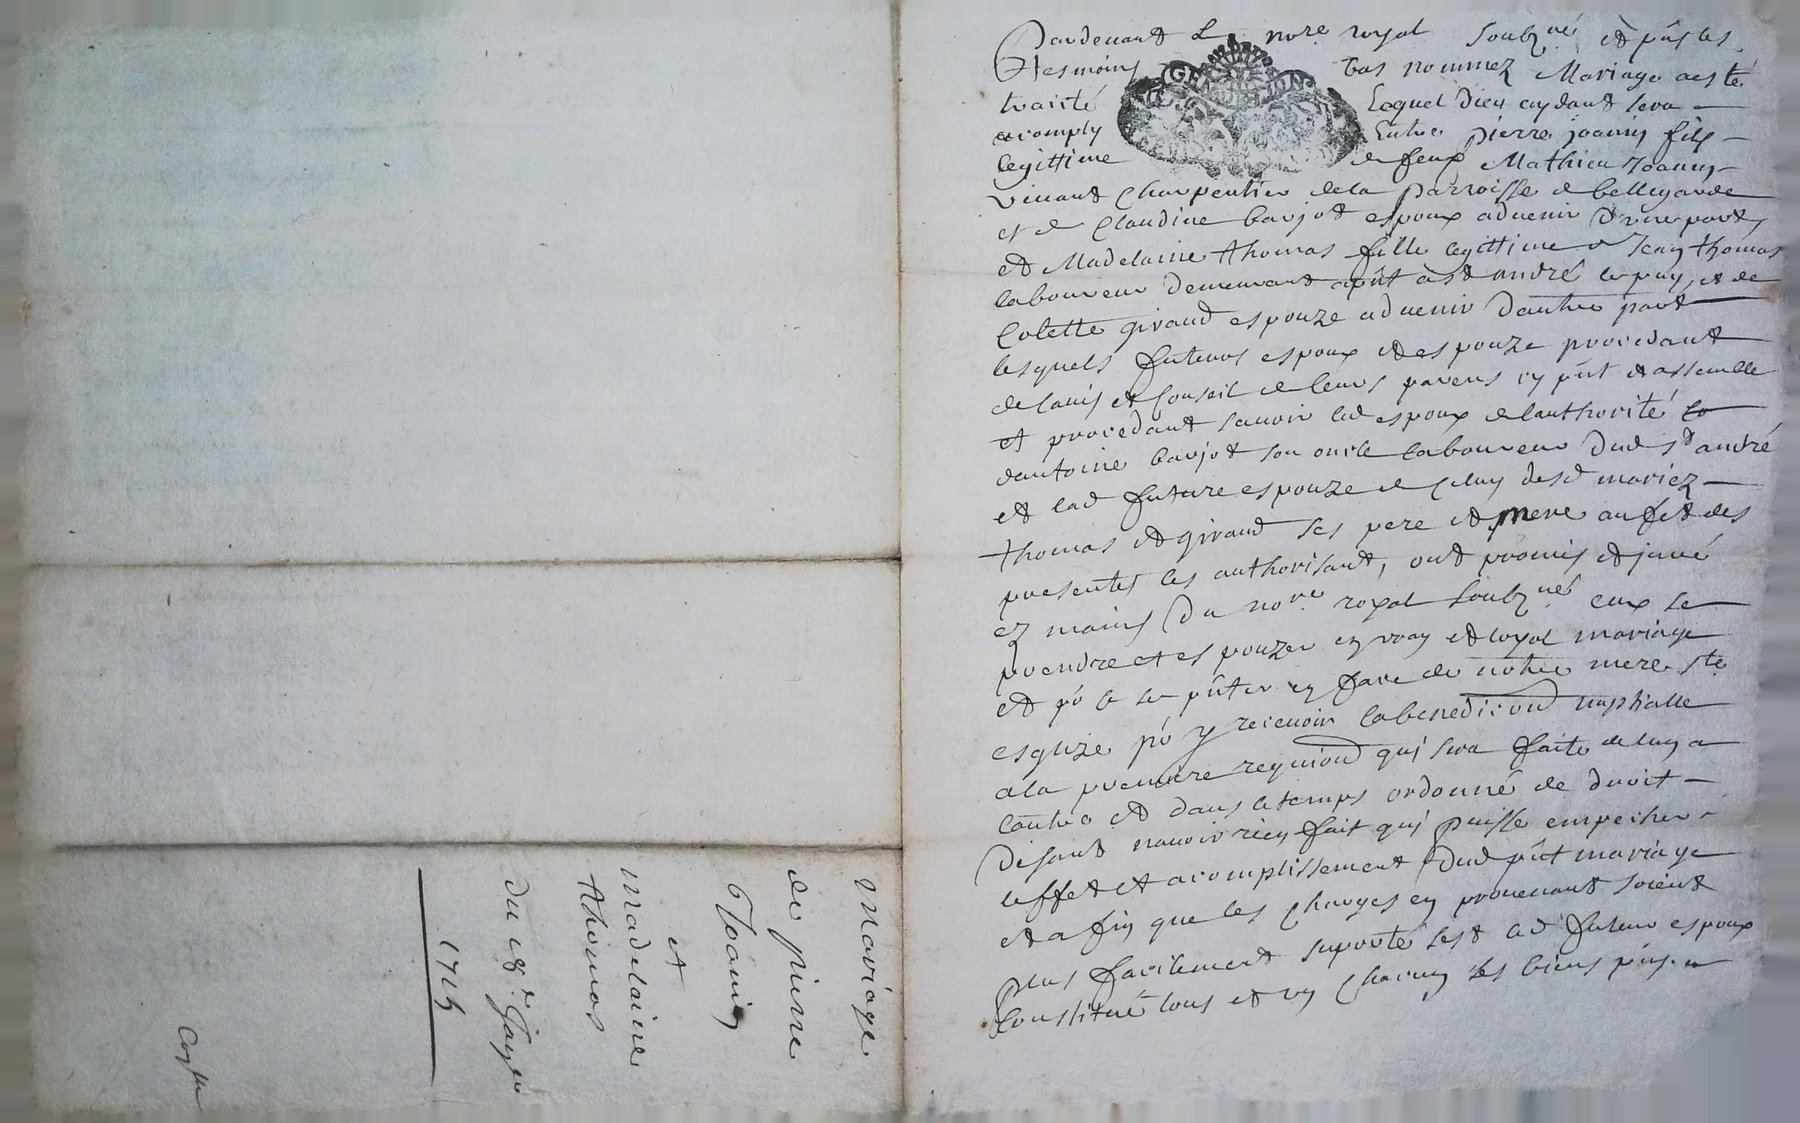 Pardevant Le nore royal soubzné et pñs les
Tesmoins bas nommez Mariage aesté
traité Lequel Dieu aydant sera
acomply Entre pierre joanin fils
legittime de feux Mathieu Joanin
vivant Charpentier dela parroisse de bellegarde
et de Claudine barjot espoux advenir d'une part,
et Madelaine thomas fille legittime de Jean thomas
laboureur demeurant a st andré le puy, et de
Colette giraud espouze advenir dautre part
lesquels futeurs espoux et espouze procedant
de lavis et conseil de leurs parens cy pñt et assemblé
et procedant savoir led espoux de lauthorité
dantoine barjot son oncle laboureur dud st andré
et lad future espouze de celuy desd mariez
thomas et giraud ses pere et mere au fet des
presentes les authorisant, ont promis et juré
ez mains du nore royal soubzné eux se
prendre et espouzer en vray et loyal mariage
et po ce se pñter en face de notre mere ste
esglize po y recevoir la benediction nuptialle
a la premiere requiond qui sera faite de luy a
lautre et dans le temps ordonné de droit
disant navoir rien fait qui puisse empecher
leffet et acomplissement dud pñt mariage
et afin que les charges en provenant soient
plus facilement suporté sest led futeur espoux
constitué tous et un chacun ses biens pñs
mariage
de pierre
Joanin
et
madelaine
thomas
du 18e Janer